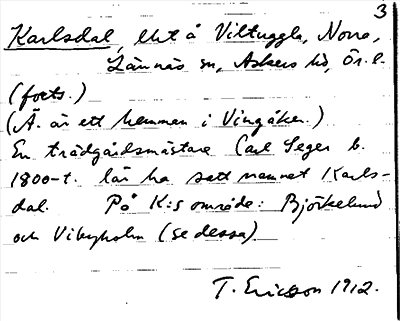 3
Karlsdal, lht å Viltuggla, Norra,
Lännäs sn, Askers hd, Ör. l.
(forts.)
(Ä. är ett hemman i Vingåker.)
En trädgårdsmästare Carl Seger b.
1800-t. lär ha satt namnet Karls-
dal. På K:s område: Björkelund
och Vibyholm (se dessa).
T. Ericsson 1912.